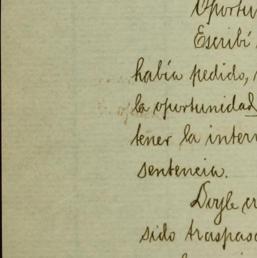 Oportun
Escribí
había pedido,
la oportunidad
tener la inter
sentencia.
Doyle
sido traspas